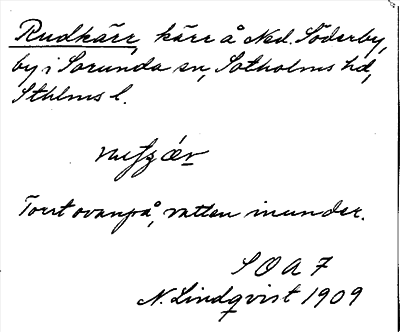 Rudkärr, kärr å Ned. Söderby,
by i Sorunda sn, Sotholms hd,
Sthlms l.
Torrt ovanpå, vatten inunder.
S O A 7
N. Lindqvist 1909